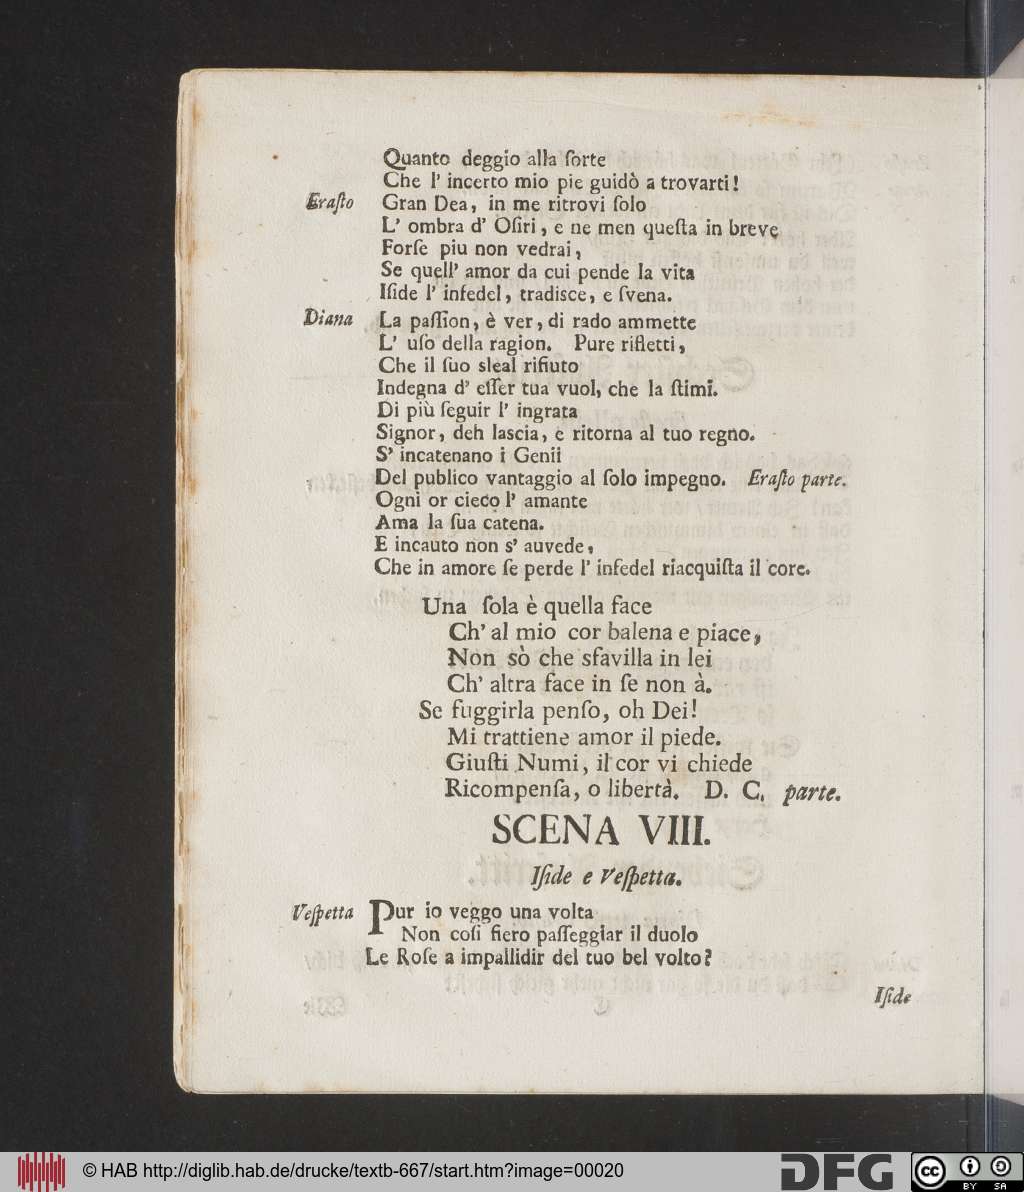 Quanto deggio alla ſorte
Che l' incerto mio pie guidò a trovarti!
Eraſto Gran Dea, in me ritrovi ſolo
L' ombra d' Oſiri, e ne men queſta in breve
Forſe piu non vedrai,
Se quell' amor da cui pende la vita
Iſide l' infedel, tradisce, e ſvena.
Diana La paſſion, è ver, di rado ammette
L' uſo della ragion. Pure rifletti,
Che il ſuo sleal rifiuto
Indegna d' eſſer tua vuol, che la ſtimi.
Di più ſeguir l' ingrata
Signor, deh lascia, e ritorna al tuo regno.
S' incatenano i Genii
Del publico vantaggio al ſolo impegno. Eraſto parte.
Ogni or cieco l' amante
Ama la ſua catena.
E incauto non s' auvede,
Che in amore ſe perde l' infedel riacquiſta il core.
Una ſola è quella face
Ch' al mio cor balena e piace,
Non sò che sfavilla in lei
Ch' altra face in ſe non à.
Se fuggirla penſo, oh Dei!
Mi trattiene amor il piede.
Giuſti Numi, il cor vi chiede
Ricompenſa, o libertà. D. C. parte.
SCENA VIII.
Iſide e Veſpetta.
Veſpetta Pur io veggo una volta
Non coſi fiero paſſeggiar il duolo
Le Roſe a impallidir del tuo bel volto?
Iſide
© HAB http://diglib.hab.de/drucke/textb-667/start.htm?image=00020
DFG
cc
BY SA